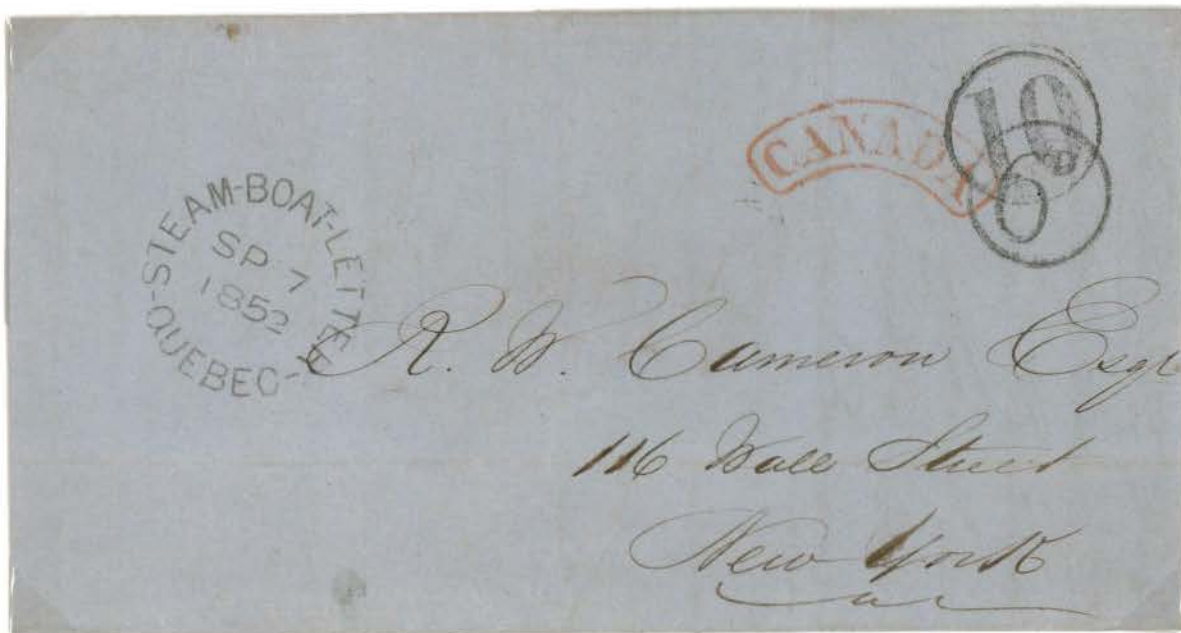 STEAM-BOAT-LETTER
SP 7
1852
-QUEBEC-
CANADA
10
6
R. W. Cameron Esqr
116 Wall Street
New York